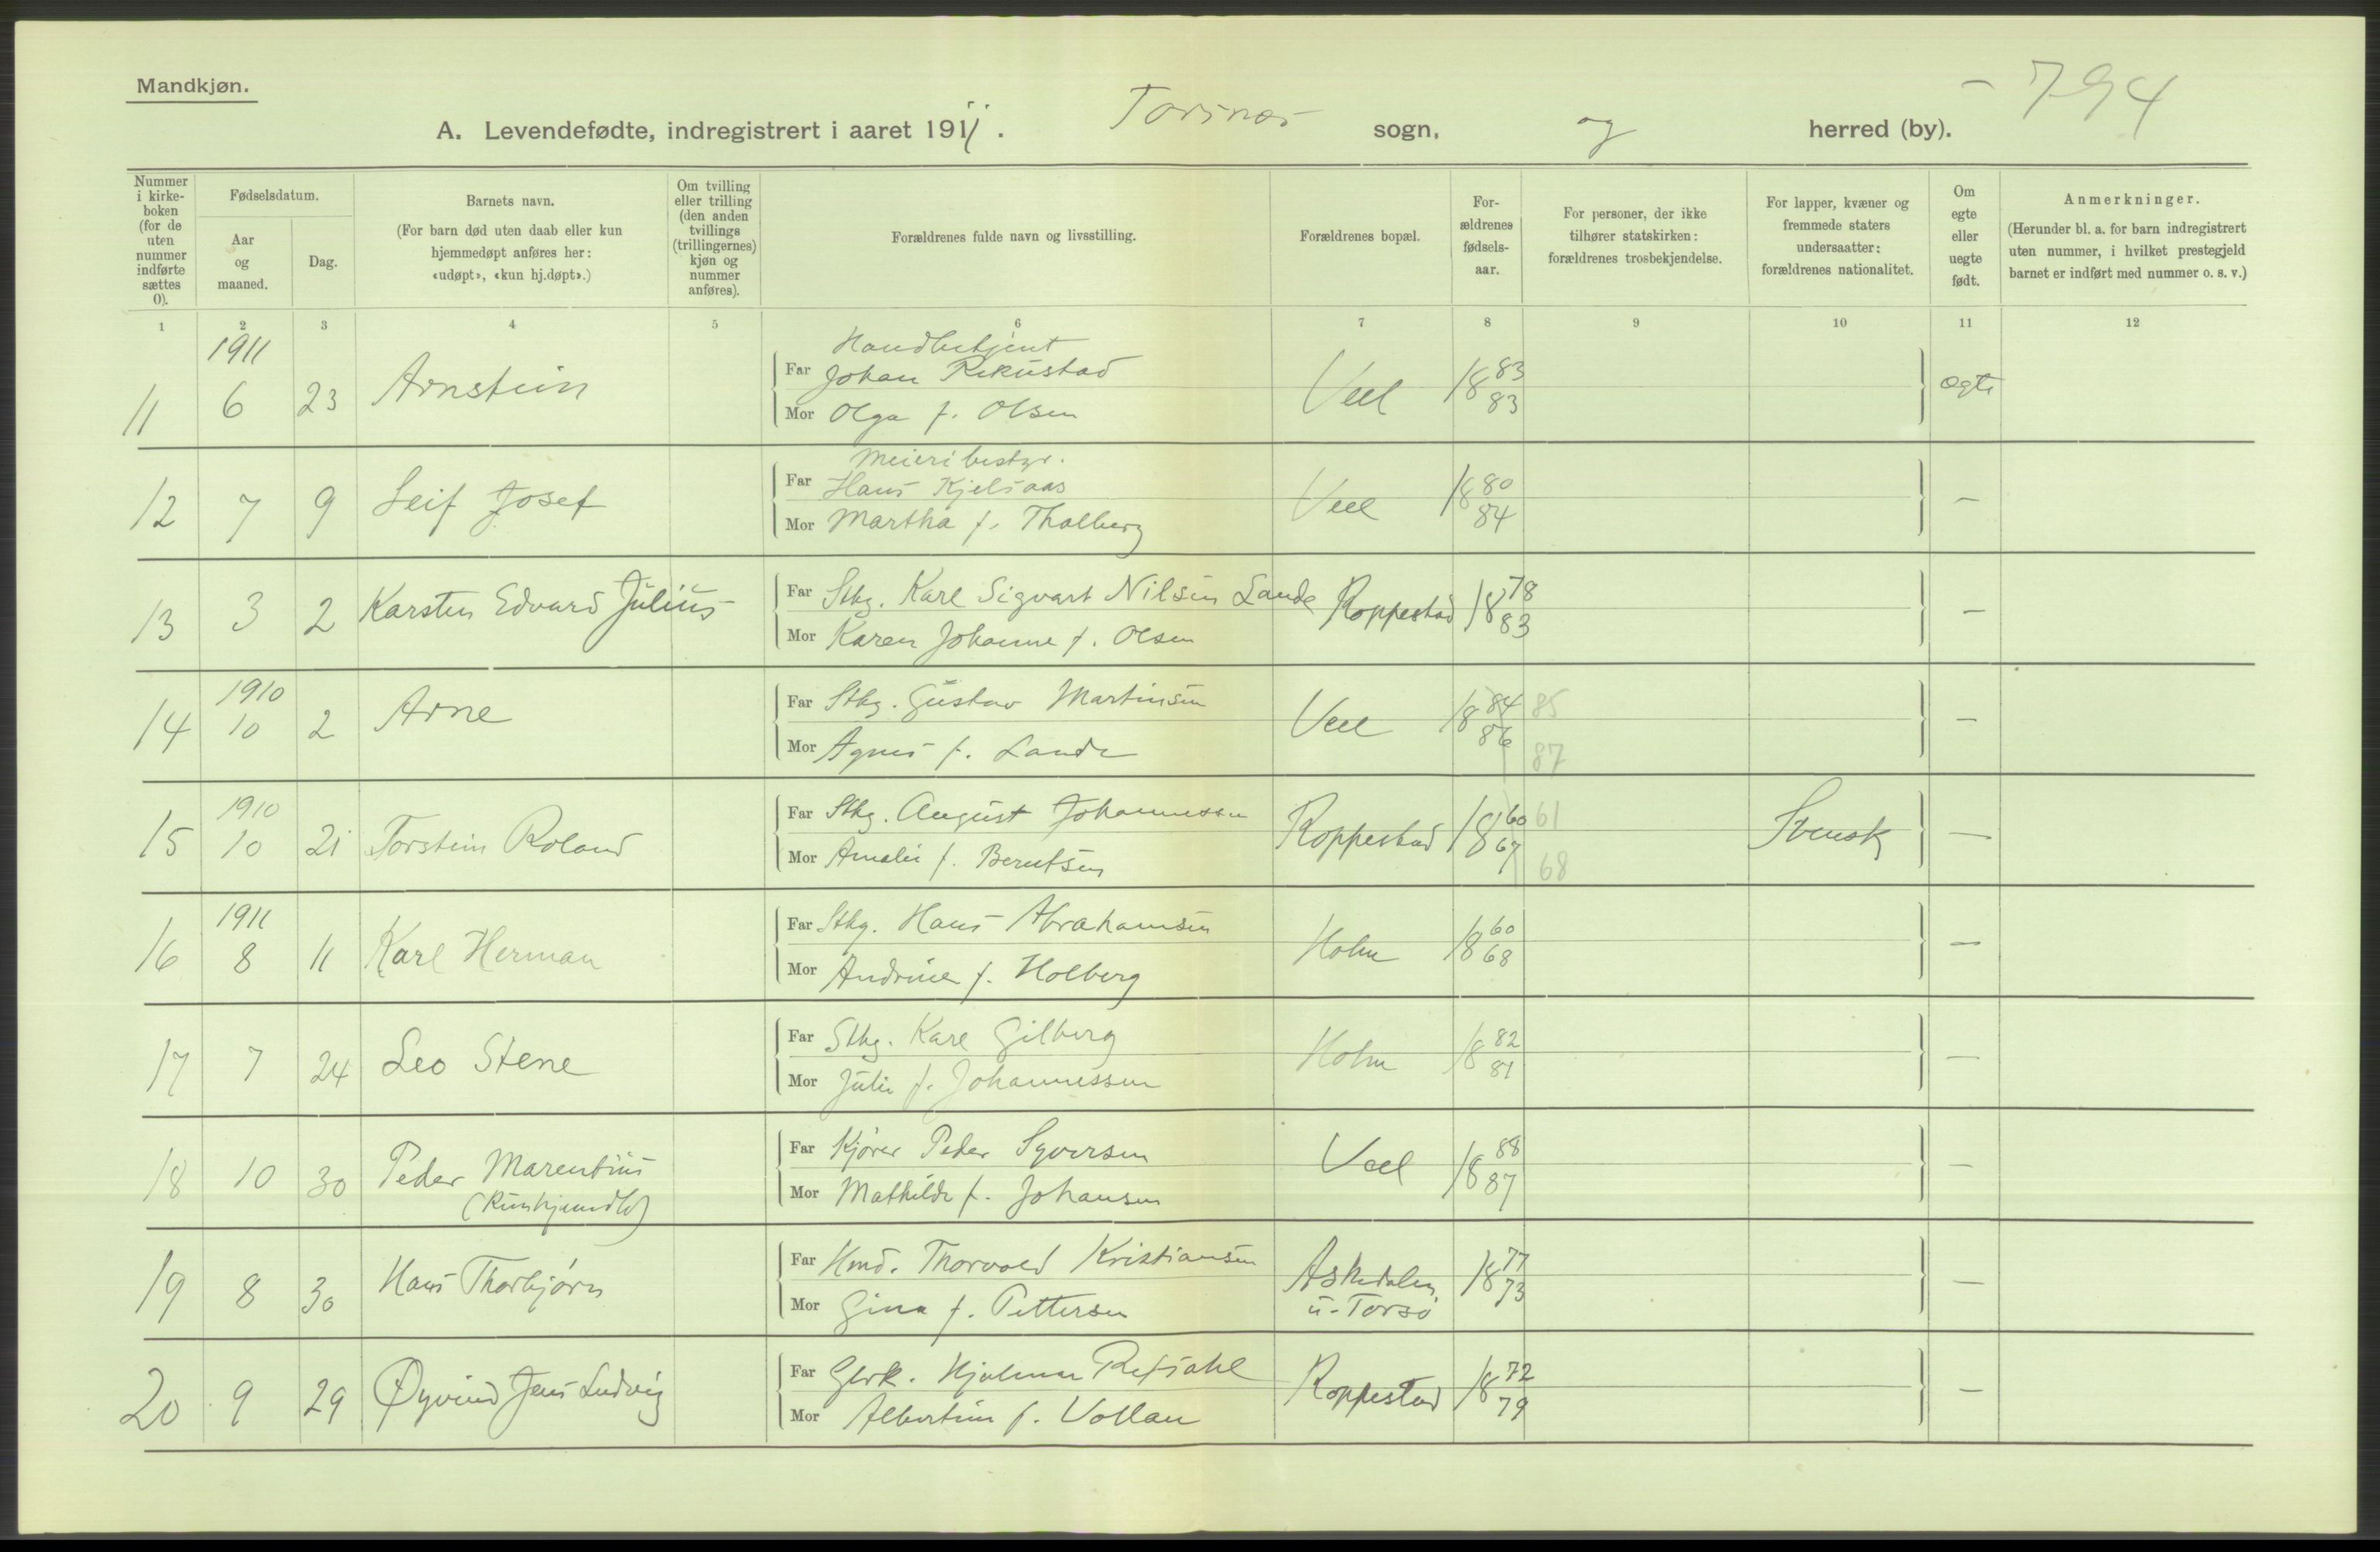 Mandkjøn.
A. Levendefødte, indregistrert i aaret 1911. Torsnes sogn, og herred (by). - 794
Nummer i kirkeboken (for de uten nummer indførte sættes 0).
Fødselsdatum.
Aar og maaned.
Dag.
Barnets navn.
(For barn død uten daab eller kun hjemmedøpt anføres her: «udøpt», «kun hj.døpt».)
Om tvilling eller trilling (den anden tvillings (trillingernes) kjøn og nummer anføres).
Forældrenes fulde navn og livsstilling.
Forældrenes bopæl.
Forældrenes fødselsaar.
For personer, der ikke tilhører statskirken: forældrenes trosbekjendelse.
For lapper, kvæner og fremmede staters undersaatter: forældrenes nationalitet.
Om egte eller uegte født.
Anmerkninger.
(Herunder bl. a. for barn indregistrert uten nummer, i hvilket prestegjeld barnet er indført med nummer o. s. v.)
1 2 3 4 5 6 7 8 9 10 11 12
1911
11 6 23 Arnstein
Handbetjent
Far Johan Rekustad
Mor Olga f. Olsen
Veel 18 83 83 ægte
12 7 9 Leif Josef
Meieribestyr.
Far Hans Kjelsaas
Mor Martha f. Thalberg
Veel 18 80 84 -
13 3 2 Karsten Edvard Julius
Far Sthg. Karl Sigvart Nilsen Lande
Mor Karen Johanne f. Olsen
Roppestad 18 78 83 -
1910
14 10 2 Arne
Far Sthg. Gustav Martinsen
Mor Agnes f. Lande
Veel 18 84 86 85 87 -
1910
15 10 21 Torstein Roland
Far Sthg. August Johannessen
Mor Amalie f. Berntsen
Roppestad 18 60 67 61 68 Svensk -
1911
16 8 11 Karl Herman
Far Sthg. Hans Abrahamsen
Mor Andrine f. Holberg
Holm 18 60 68 -
17 7 24 Leo Stene
Far Sthg. Karl Gilberg
Mor Julie f. Johannessen
Holm 18 82 81 -
18 10 30 Peder Marentius
Far Kjører Peder Syversen
Mor Mathilde f. Johansen
Veel 18 88 87 -
19 8 30 Hans Thorbjørn
Far Hmd. Thorvald Kristiansen
Mor Gina f. Pettersen
Askedalen
u. Torsø
18 77 73 -
20 9 29 Øyvind Jens Ludvig
Far Hjalmar Refsahl
Mor Albertine f. Vollan
Roppestad 18 72 79 -